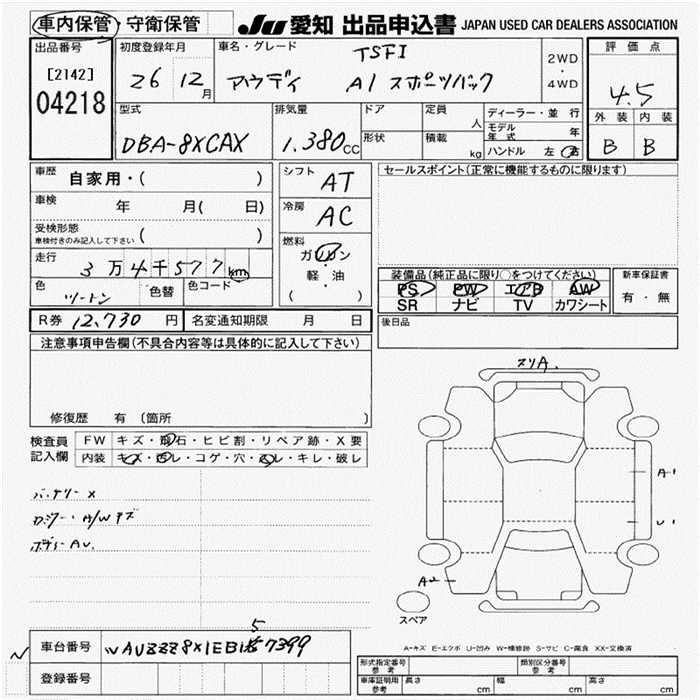 車内保管・守衛保管 JU 愛知 出品申込書 JAPAN USED CAR DEALERS ASSOCIATION
出品番号 [2142] 04218
初度登録年月 26 12月
車名・グレード TSFI アウディ A1 スポーツバック
2WD・4WD
評価点 4.5
外装 内装
B B
型式 DBA-8XCAX
排気量 1.380cc
ドア 形状
定員 人
積載 kg
ディーラー・並行
モデル年式 年
ハンドル 左 右
車歴 自家用・( )
車検 年 月( 日)
受検形態 車検付きのみ記入して下さい ( )
走行 3万4千577km
色 ツートン 色替 色コード
シフト AT
冷房 AC
燃料 ガソリン・軽・油 ( )
セールスポイント(正常に機能するものに限ります)
装備品(純正品に限り○をつけてください)
PS PW エアB AW
SR ナビ TV カワシート
新車保証書 有・無
R券 12,730 円 名変通知期限 月 日
後日品
注意事項申告欄(不具合内容等は具体的に記入して下さい)
修復歴 有 (箇所 )
検査員記入欄
FW キズ・飛石・ヒビ割・リペア跡・X要
内装 キズ・汚レ・コゲ・穴・スレ・キレ・破レ
バッテリー X
A/Wキズ
ボディー AU.
スリA.
A1
U1
A2
スペア
A-キズ E-エクボ U-凹み W-補修跡 S-サビ C-腐食 XX-交換済
車台番号 WAUZZZ8X1EB1 5 7399
登録番号
型式指定番号 参考
類別区分番号 参考
車庫証明用 参考 長さ cm 幅 cm 高さ cm